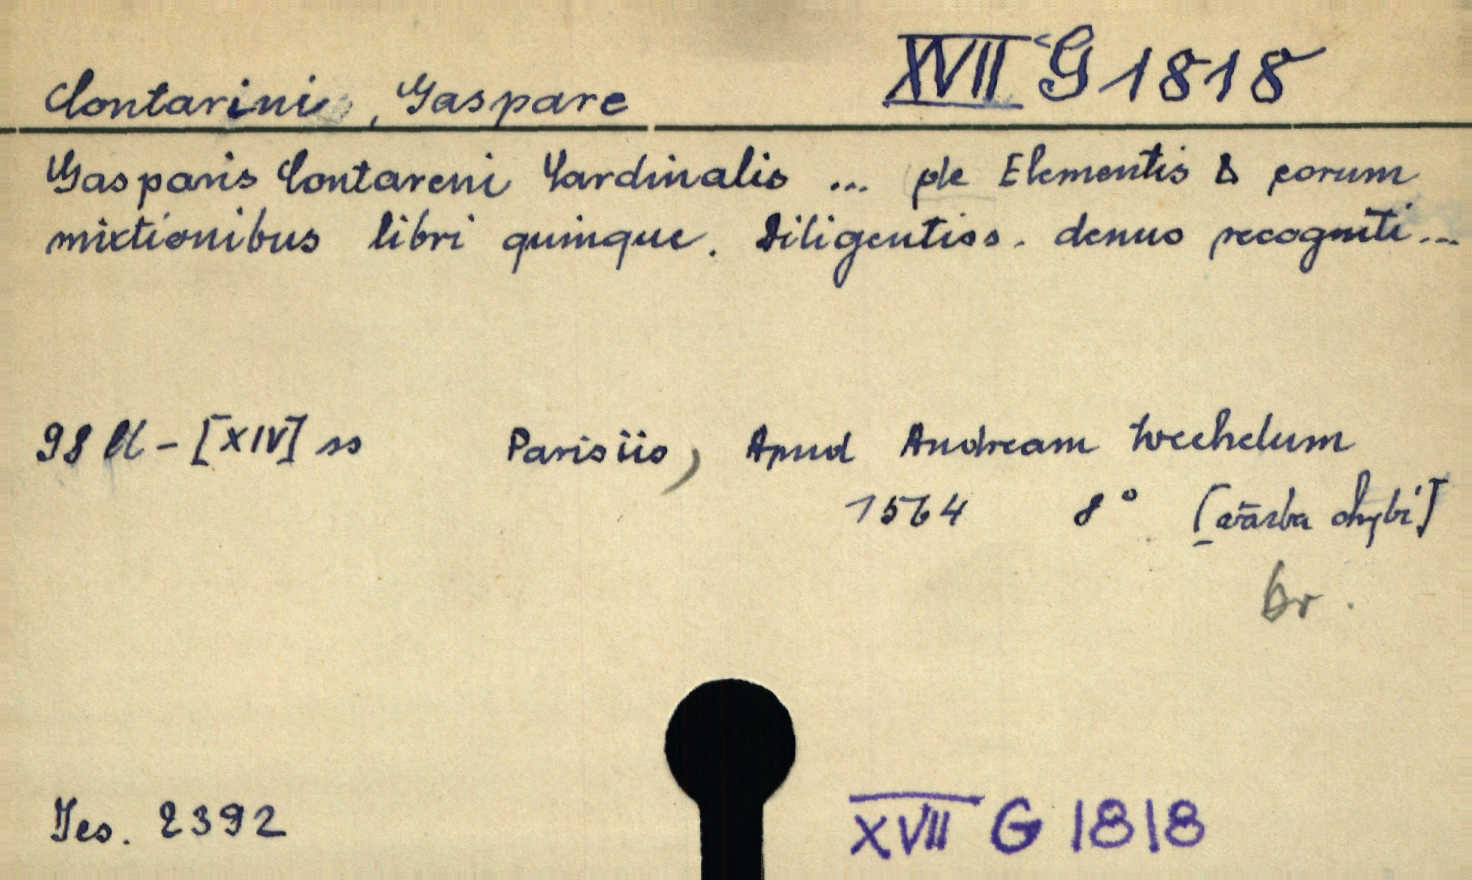 XVII G 1818
Contarini, Gaspare
Gasparis Contareni Cardinalis ... de Elementis & eorum
mixtionibus libri quinque. Diligentiss. denuo recogniti...
98 ll - [XIV] ss Parisiis, Apud Andream Wechelum
1564 8° [vazba chybí]
br.
Tes. 2392
XVII G 1818